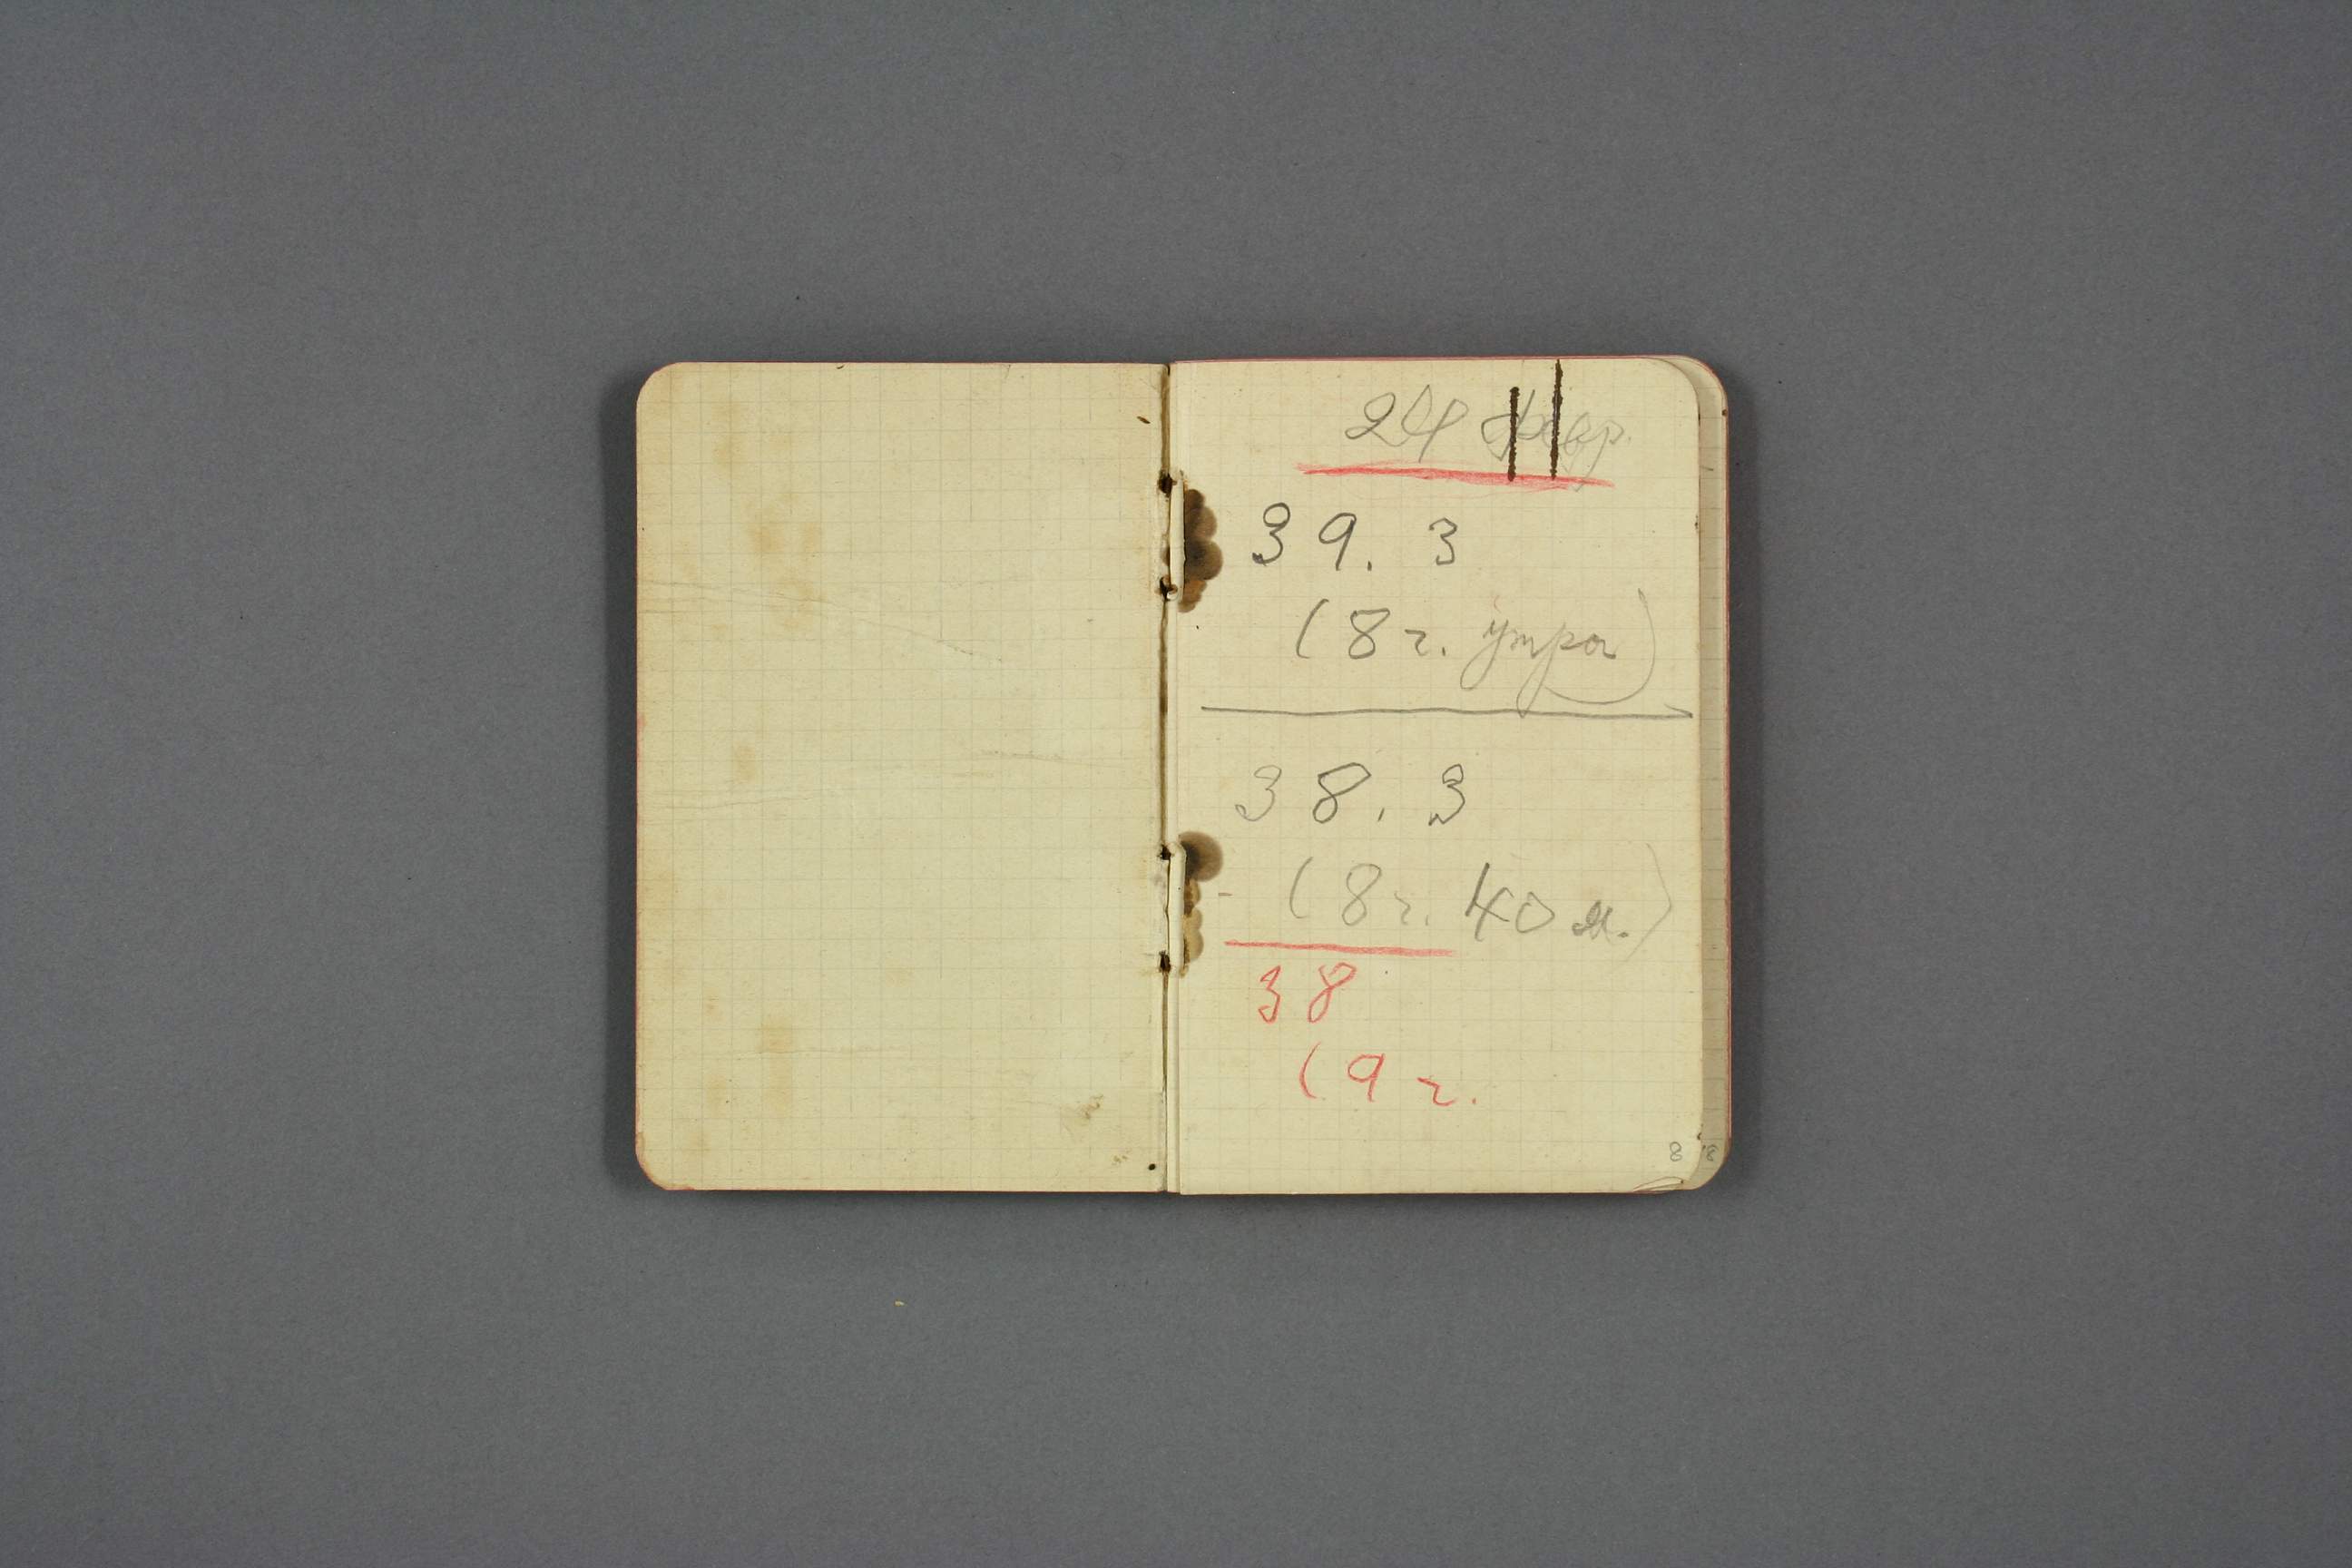 24 февр.
39. 3
(8 ч. утра)
38. 3
- (8 ч. 40 м.)
38
(9 ч.
8